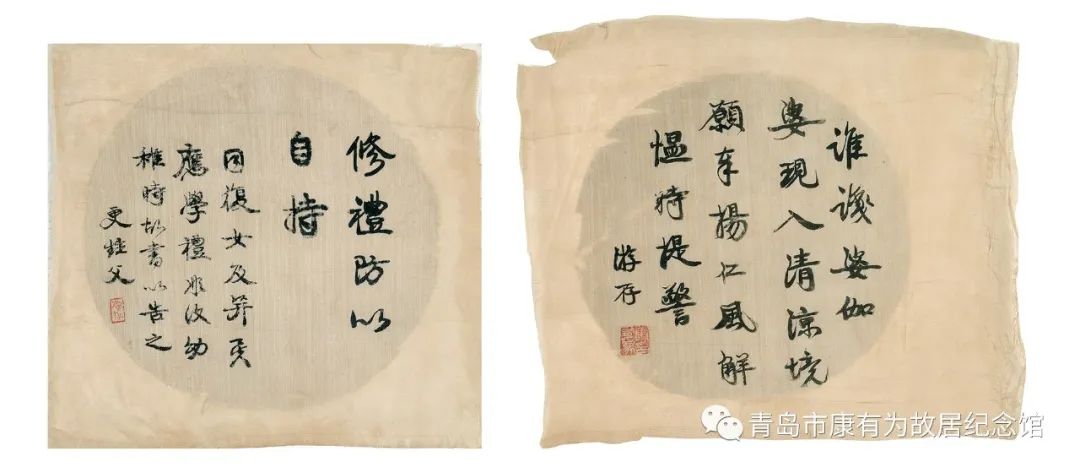 修禮防以
自持
同復女及笄矣
應學禮彤汝幼
稚時故書以告之
更甡父
誰識婆伽
婆現入清涼境
願奉揚仁風解
慍時提警
游存
青岛市康有为故居纪念馆